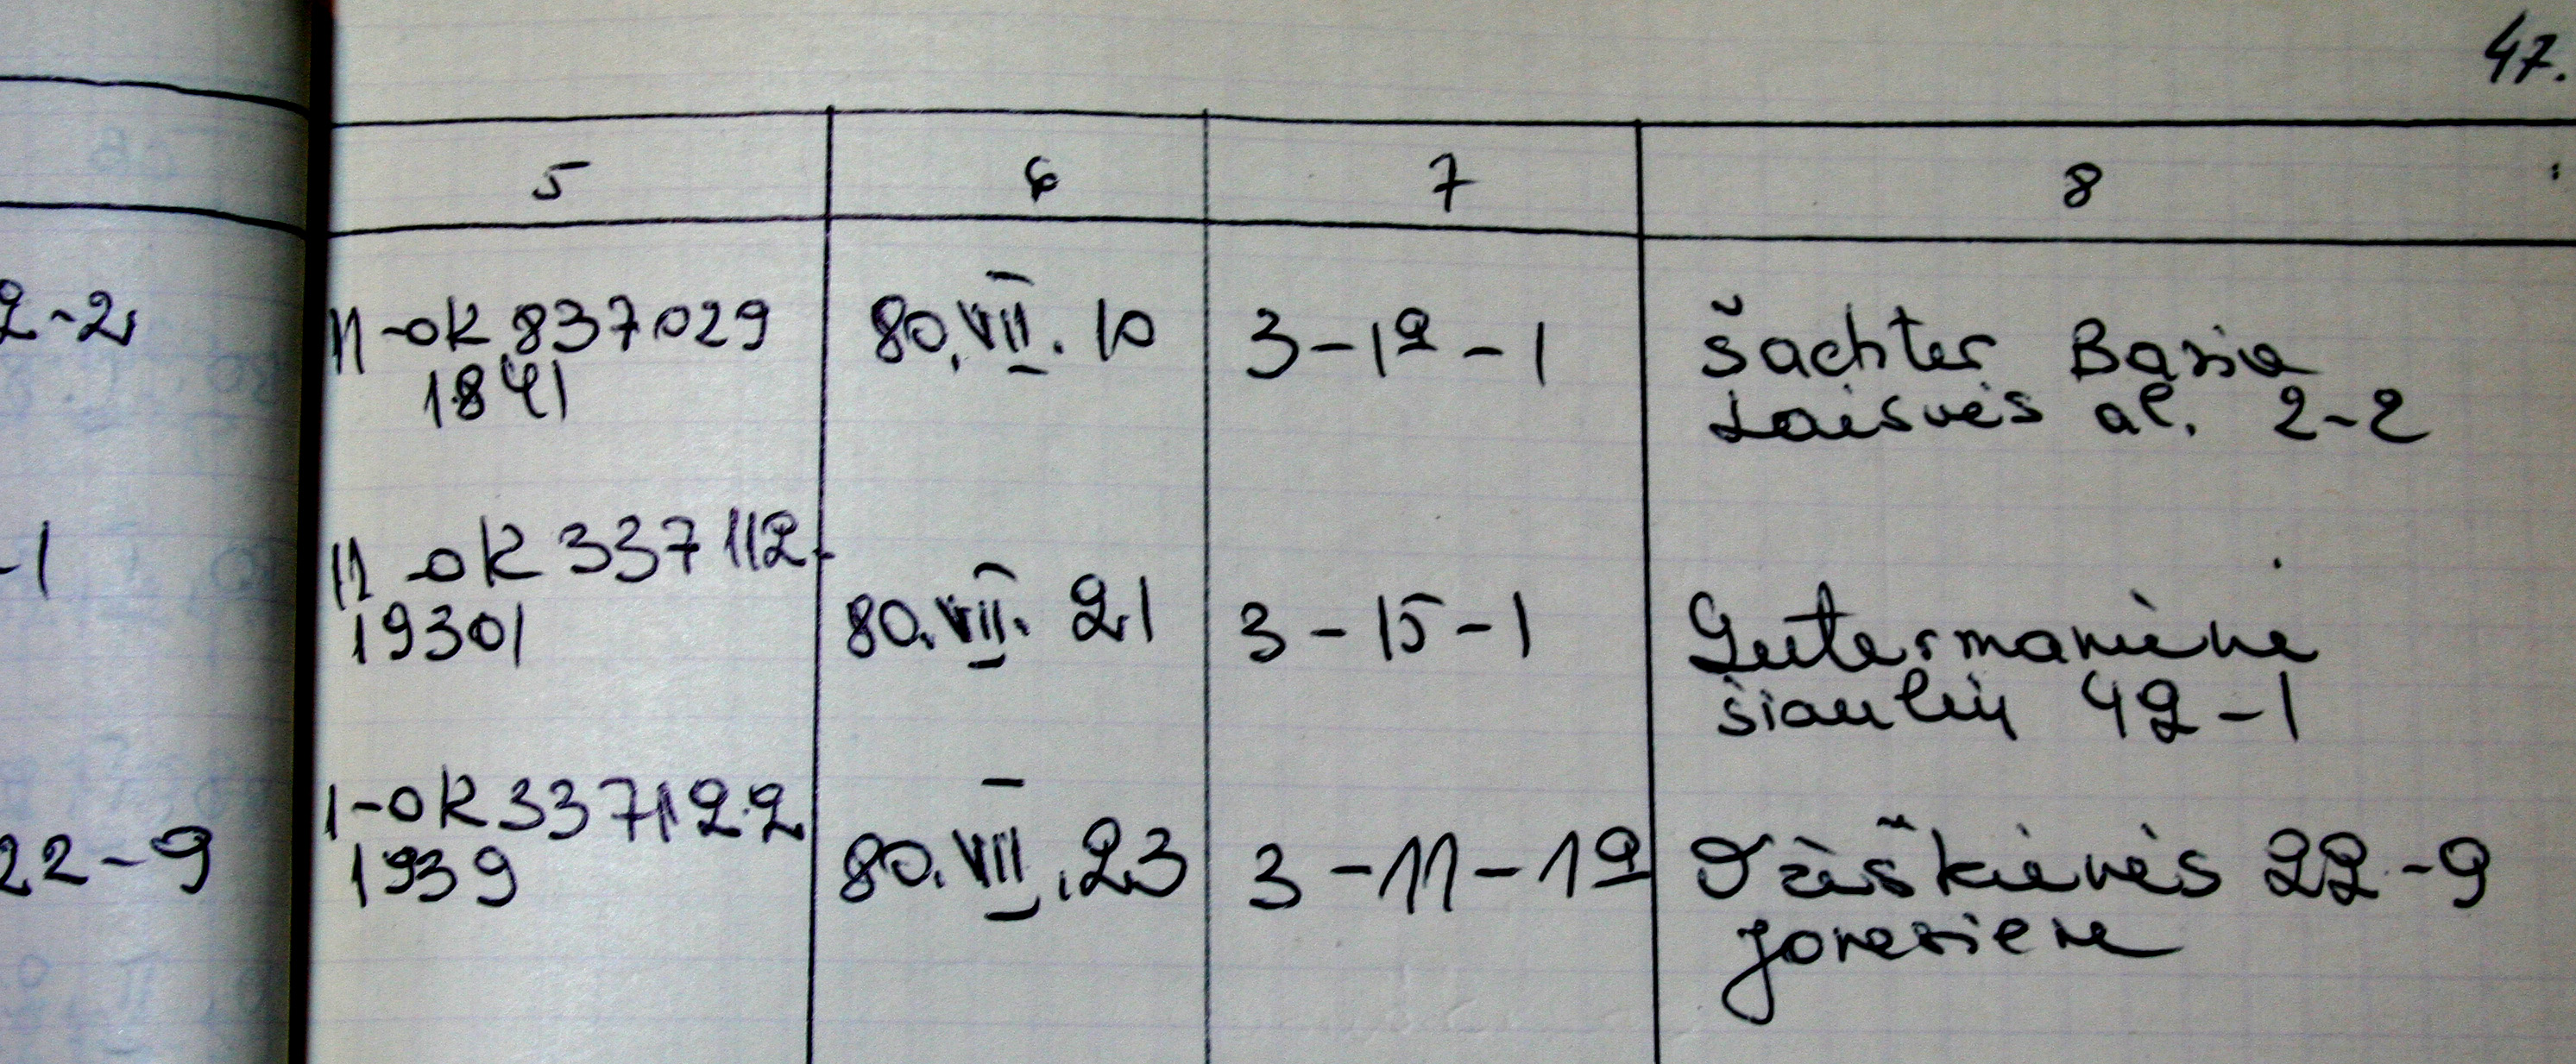 47.
5 6 7 8
2-2 II-OK 837029 80.VII.10 3-12-1 Šachter Basia
1841 Laisvės al. 2-2
-1 II-OK 337112 80.VII.21 3-15-1 Gutermanienė
19301 Šiaulių 42-1
22-9 I-OK 337122 80.VII.23 3-11-12 22-9
1939